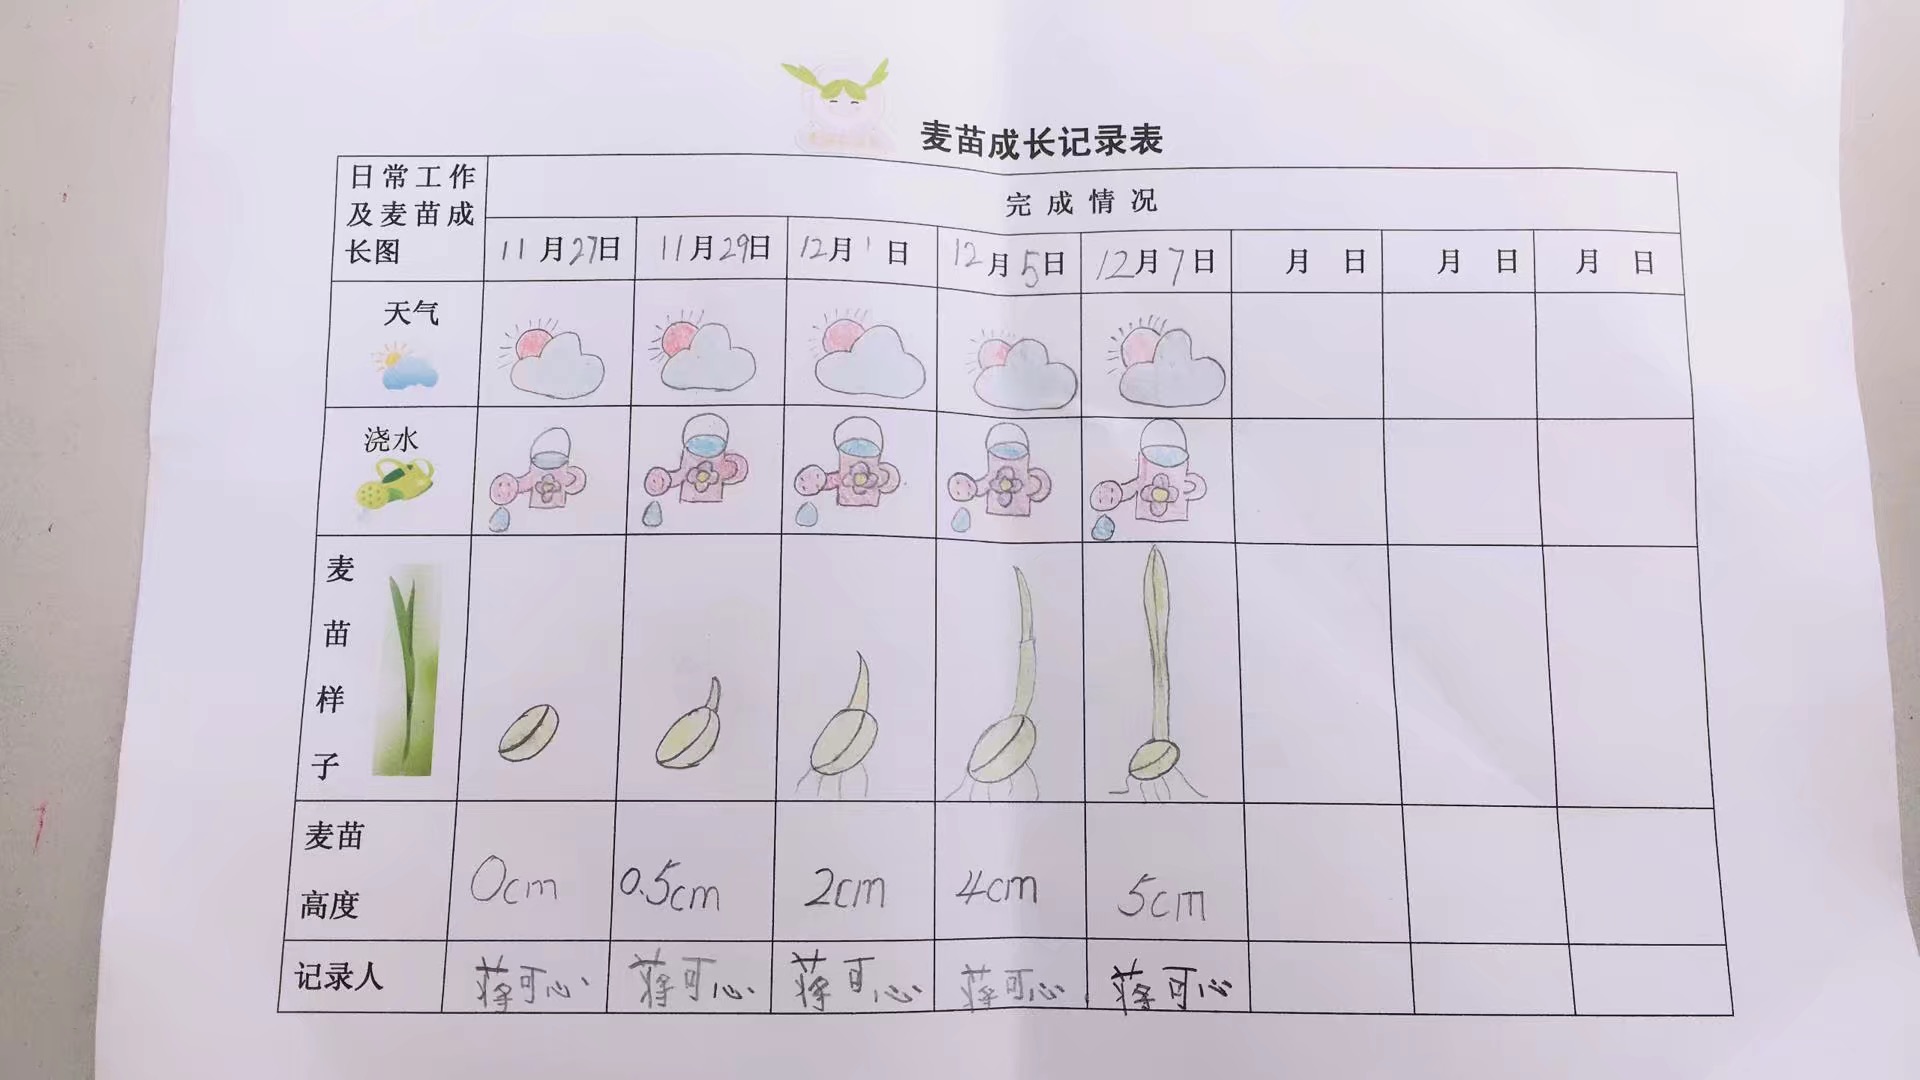 麦苗成长记录表
日常工作
及麦苗成
长图
完成情况
11月27日
11月29日
12月1日
12月5日
12月7日
月 日
月 日
月 日
天气
浇水
麦
苗
样
子
麦苗
高度
0cm
0.5cm
2cm
4cm
5cm
记录人
蒋可心
蒋可心
蒋可心
蒋可心
蒋可心